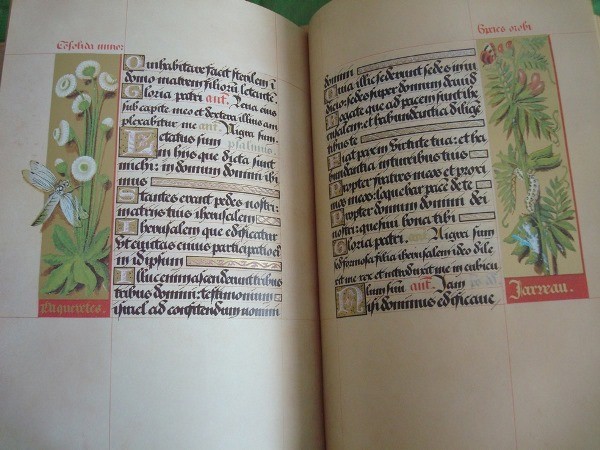 Cõsolida minor
Qui habitare facit sterilem ĩ
domo matrem filiorũ letante.
Gloria patri ant. Leva eius
sub capite meo et dextera illius am
plexabitur me ant. Nigra sum.
psalmus.
Letatus sum
in hys que dicta sunt
michi: in domum domini ibi
mus
Stantes erant pedes nostri:
in atriis tuis iherusalem
Iherusalem que edificatur
vt ciuitas cuius participatio eiꝰ
in idipsum
Illuc enim ascenderunt tribus
tribus domini: testimonium
israel ad confitendum nomini
Pliquerelles.
Gixces orobi
domini
Quia illic sederunt sedes in iu
dicio: sedes super domum dauid
Rogate que ad pacem sunt ihe
rusalem: et habundantia diligẽ
tibus te
Fiat pax in virtute tua: et ha
bundantia in turribus tuis
Propter fratres meos et proxi
mos meos: loquebar pacẽ de te
Propter domum domini dei
nostri: quesiui bona tibi
Gloria patri. Nigra sum
sed formosa filia iherusalem ideo dile
xit me rex et introduxit me in cubicu
lum suũ ant. Jam ps.
Nisi dominus edificaue
Jarreau.